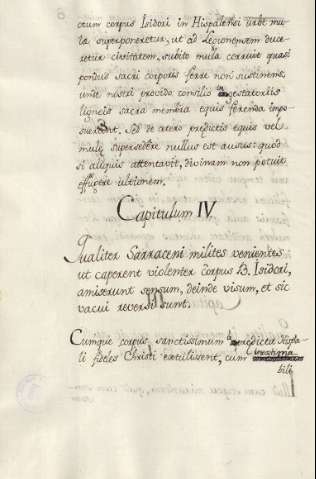 cum corpus Isidori in Hispalensi urbe mu
la superponeretur, ut ad Legionensem duce
retur civitatem, subito mula corruit quasi
pondus sacri corporis ferre non sustinens,
unde nostri provido consilio in gestatoriis
ligneis sacra membra equis ferenda impo
suerunt. Sed de cætero prædictis equis vel
mulæ supersedere nullus est ausus: quod
si aliquis attentavit, divinam non potuit
effugere ultionem.
Capitulum IV.
Qualiter Sarraceni milites venientes
ut caperent violenter corpus B. Isidori,
amiserunt sensum, deinde visum, et sic
vacui reversi sunt.
Cumque corpus sanctissimum a prædicta Hispa
li fideles Christi extulissent, cum
bili